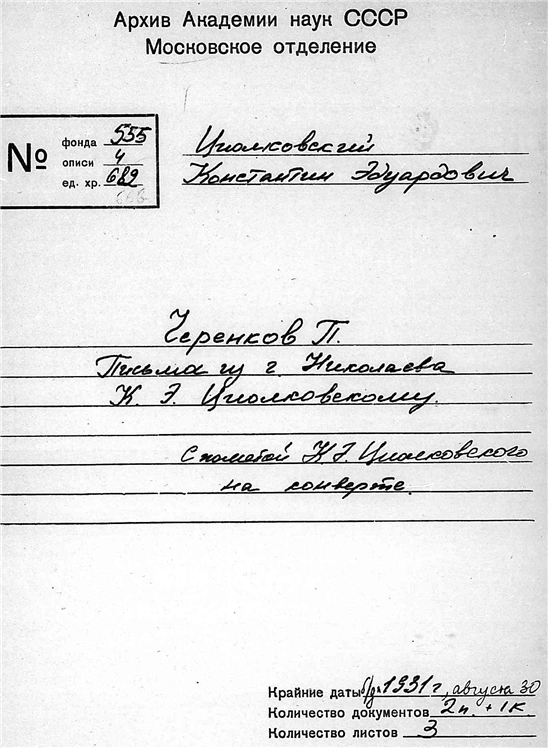 Архив Академии наук СССР
Московское отделение
№
фонда 555
описи 4
ед. хр. 682
Циолковский
Константин Эдуардович
Черенков П.
Письма из г. Николаева
К. Э. Циолковскому.
С пометой К.Э. Циолковского
на конверте.
Крайние даты б/д, 1931 г, августа 30
Количество документов 2п. + 1к.
Количество листов 3